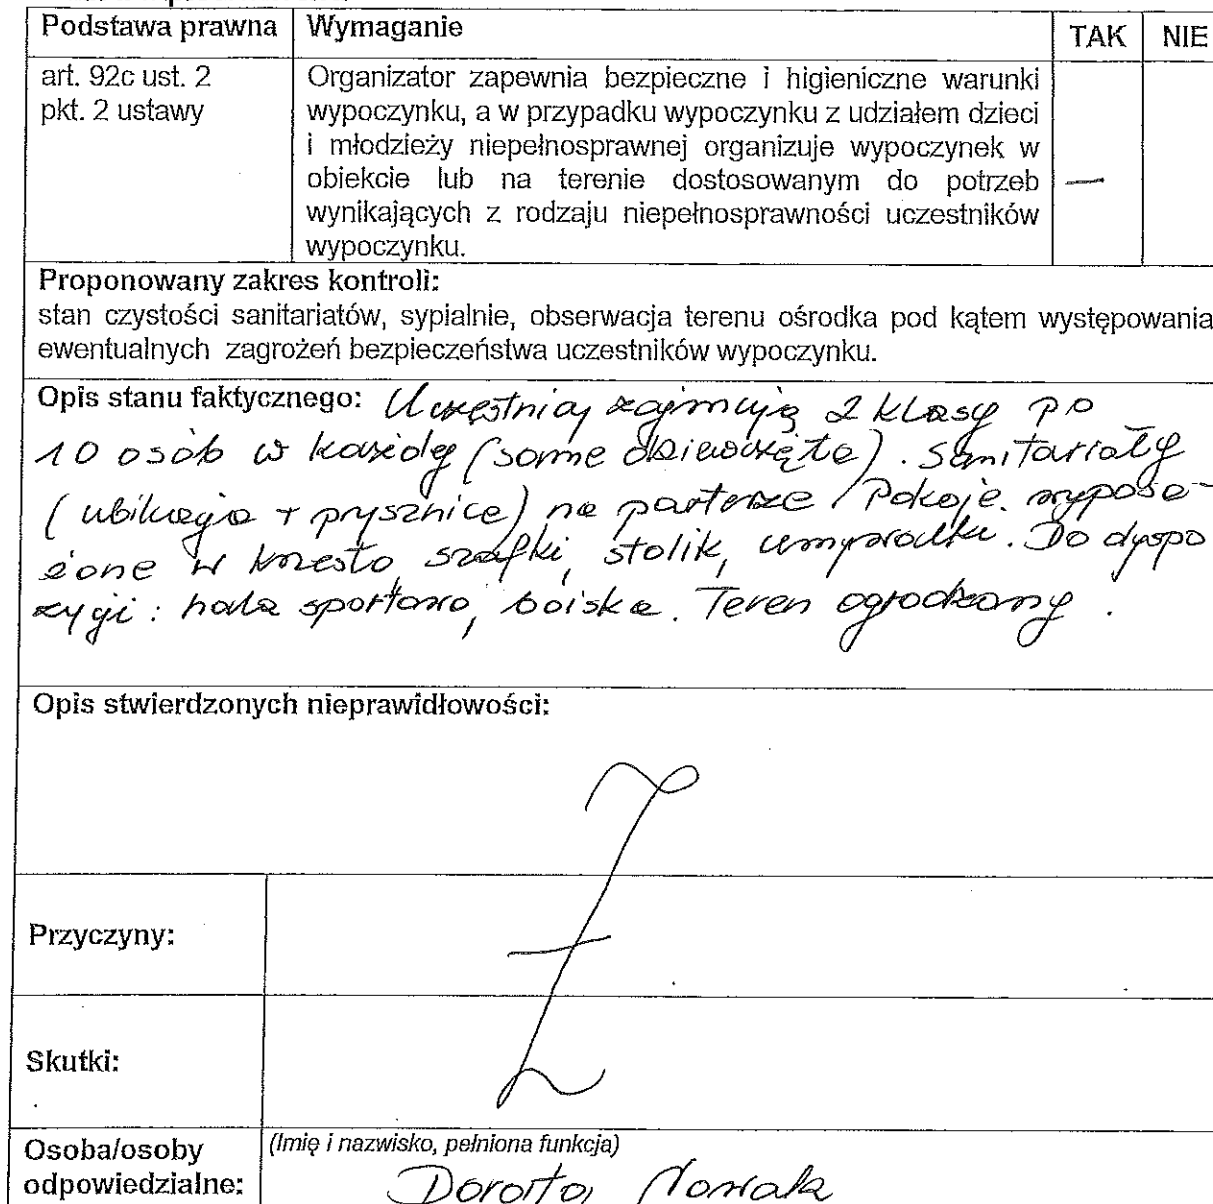 Podstawa prawna Wymaganie TAK NIE
art. 92c ust. 2 Organizator zapewnia bezpieczne i higieniczne warunki
pkt. 2 ustawy wypoczynku, a w przypadku wypoczynku z udziałem dzieci
i młodzieży niepełnosprawnej organizuje wypoczynek w
obiekcie lub na terenie dostosowanym do potrzeb —
wynikających z rodzaju niepełnosprawności uczestników
wypoczynku.
Proponowany zakres kontroli:
stan czystości sanitariatów, sypialnie, obserwacja terenu ośrodka pod kątem występowania
ewentualnych zagrożeń bezpieczeństwa uczestników wypoczynku.
Opis stanu faktycznego: Uczestnicy zajmują 2 klasy po
10 osób w każdej (same dziewczęta). Sanitariaty
(ubikacja + prysznice) na parterze. Pokoje wyposa-
żone w krzesło szafki, stolik, umywalki. Do dyspo
zycji: hala sportowa, boiska. Teren ogrodzony.
Opis stwierdzonych nieprawidłowości:
Przyczyny:
Skutki:
Osoba/osoby (Imię i nazwisko, pełniona funkcja)
odpowiedzialne: Dorota Nowak